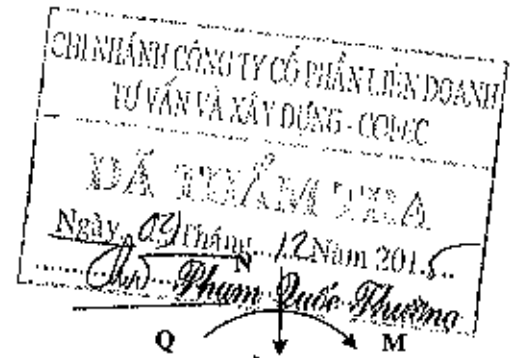 CHI NHÁNH CÔNG TY CỔ PHẦN LIÊN DOANH
TƯ VẤN VÀ XÂY DỰNG - COFEC
ĐÃ THẨM TRA
Ngày 09 Tháng 12 Năm 201
Phạm Quốc Thường
N
Q M